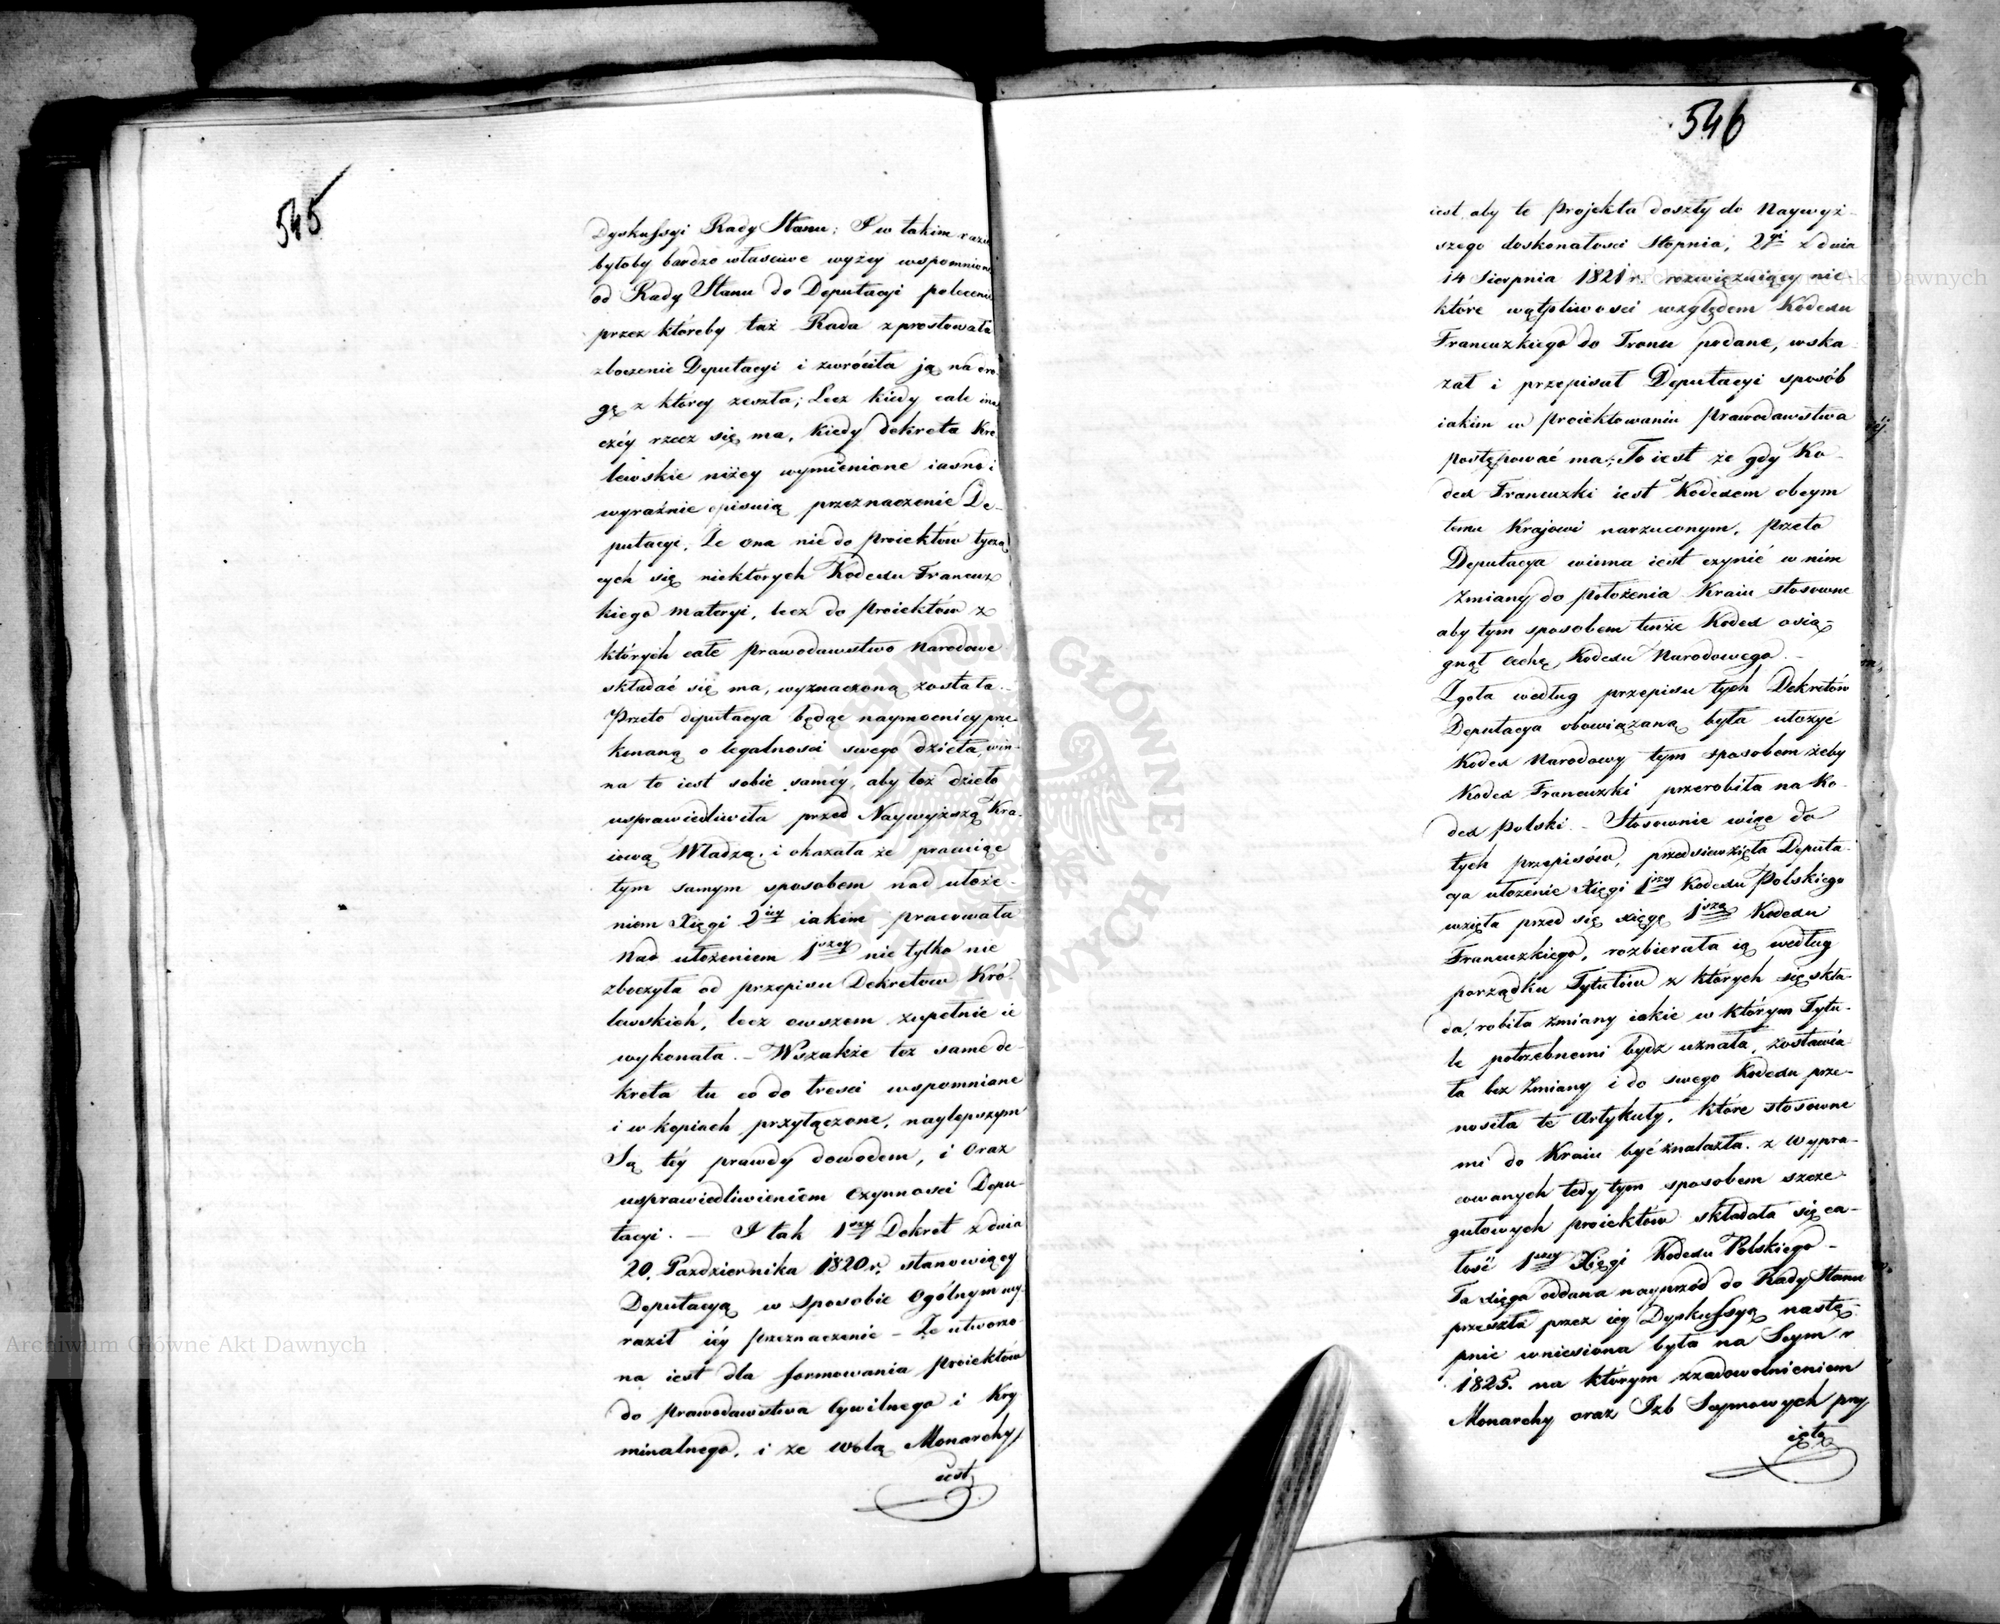 545
Dyskussyi Rady Stanu; I w takim razie
byłoby bardzo właściwe wyżey wspomnione
od Rady Stanu do Deputacyi polecenie
przez któreby taż Rada zprostowała
zboczenie Deputacyi i zwróciła ją na dro-
gę z którey zeszła; Lecz kiedy cale ina
czéy rzecz się ma, kiedy dekreta Kró
lewskie niżey wymienione iasno i
wyraźnie opisuią przeznaczenie De-
putacyi, Że ona nie do proiektów tyczą
cych się niektórych Kodexu Francuz
kiego materyi, lecz do proiektów z
których całe prawodawstwo Narodowe
składać się ma, wyznaczoną została.-
Przeto deputacya będąc naymocniey prze
konaną o legalności swego dzieła, win-
na to iest sobie saméy, aby toż dzieło
usprawiedliwiła przed Naywyższą Kra-
iową Władzą, i okazała że pracuiąc
tym samym sposobem nad ułoże-
niem Xięgi 2iey iakim pracowała
Nad ułożeniem 1szey nie tylko nie
zboczyła od przepisu Dekretów Kró-
lewskich, lecz owszem zupełnie ie
wykonała. - Wszakże też same de-
kreta tu co do treści wspomniane
i w kopiach przyłączone, naylepszym
Są téy prawdy dowodem, i oraz
usprawiedliwieniem czynności Depu-
tacyi. - I tak 1szy Dekret z dnia
20. Pazdziernika 1820 r. stanowiący
Deputacyą w sposobie ogólnym wy-
raził iéy przeznaczenie - Że utworzo-
na iest dla formowania proiektów
do prawodawstwa Cywilnego i Kry
minalnego, i że wolą Monarchy
iest
546
iest aby te projekta doszły do Naywyż-
szego doskonałości stopnia, 2gi z dnia
14 Sierpnia 1821 r. rozwiązuiący nie-
które wątpliwości względem Kodexu
Francuzkiego do Tronu podane, wska-
zał i przepisał Deputacyi sposób
iakim w proiektowaniu prawodawstwa
postępować ma; To iest że gdy Ko-
dex Francuzki iest Kodexem obcym
temu Krajowi narzuconym, przeto
Deputacya winna iest czynić w nim
Zmiany do położenia Kraiu stosowne
aby tym sposobem tenże Kodex osią-
gnął cechę Kodexu Narodowego -
Zgoła według przepisu tych Dekretów
Deputacya obowiązaną była ułożyć
Kodex Narodowy tym sposobem żeby
Kodex Francuzki przerobiła na Ko-
dex polski. - Stosownie więc do
tych przepisów, przedsiewzięła Deputa-
cya ułożenie Xięgi 1szey Kodexu Polskiego
wzięła przed się xięgę 1szą Kodexu
Francuzkiego, rozbierała ią według
porządku Tytułów z których się skła-
da, robiła Zmiany iakie w którym Tytu-
le potrzebnemi bydz uznała, zostawia
ła bez Zmiany i do swego Kodexu prze-
nosiła te Artykuły, które stosowne
mi do Kraiu być znalazła. z Wypra-
cowanych tedy tym sposobem szcze-
gułowych proiektów składała się ca-
łość 1szey Xięgi Kodexu Polskiego -
Ta xięga oddana nayprzód do Rady Stanu
przeszła przez iey Dyskussyą nastę-
pnie wniesiona była na Seym r
1825. na którym zzadowolnieniem
Monarchy oraz Izb Seymowych przy
ięta
Archiwum Główne Akt Dawnych
Archiwum Główne Akt Dawnych
ARCHIWUM GŁÓWNE AKT DAWNYCH